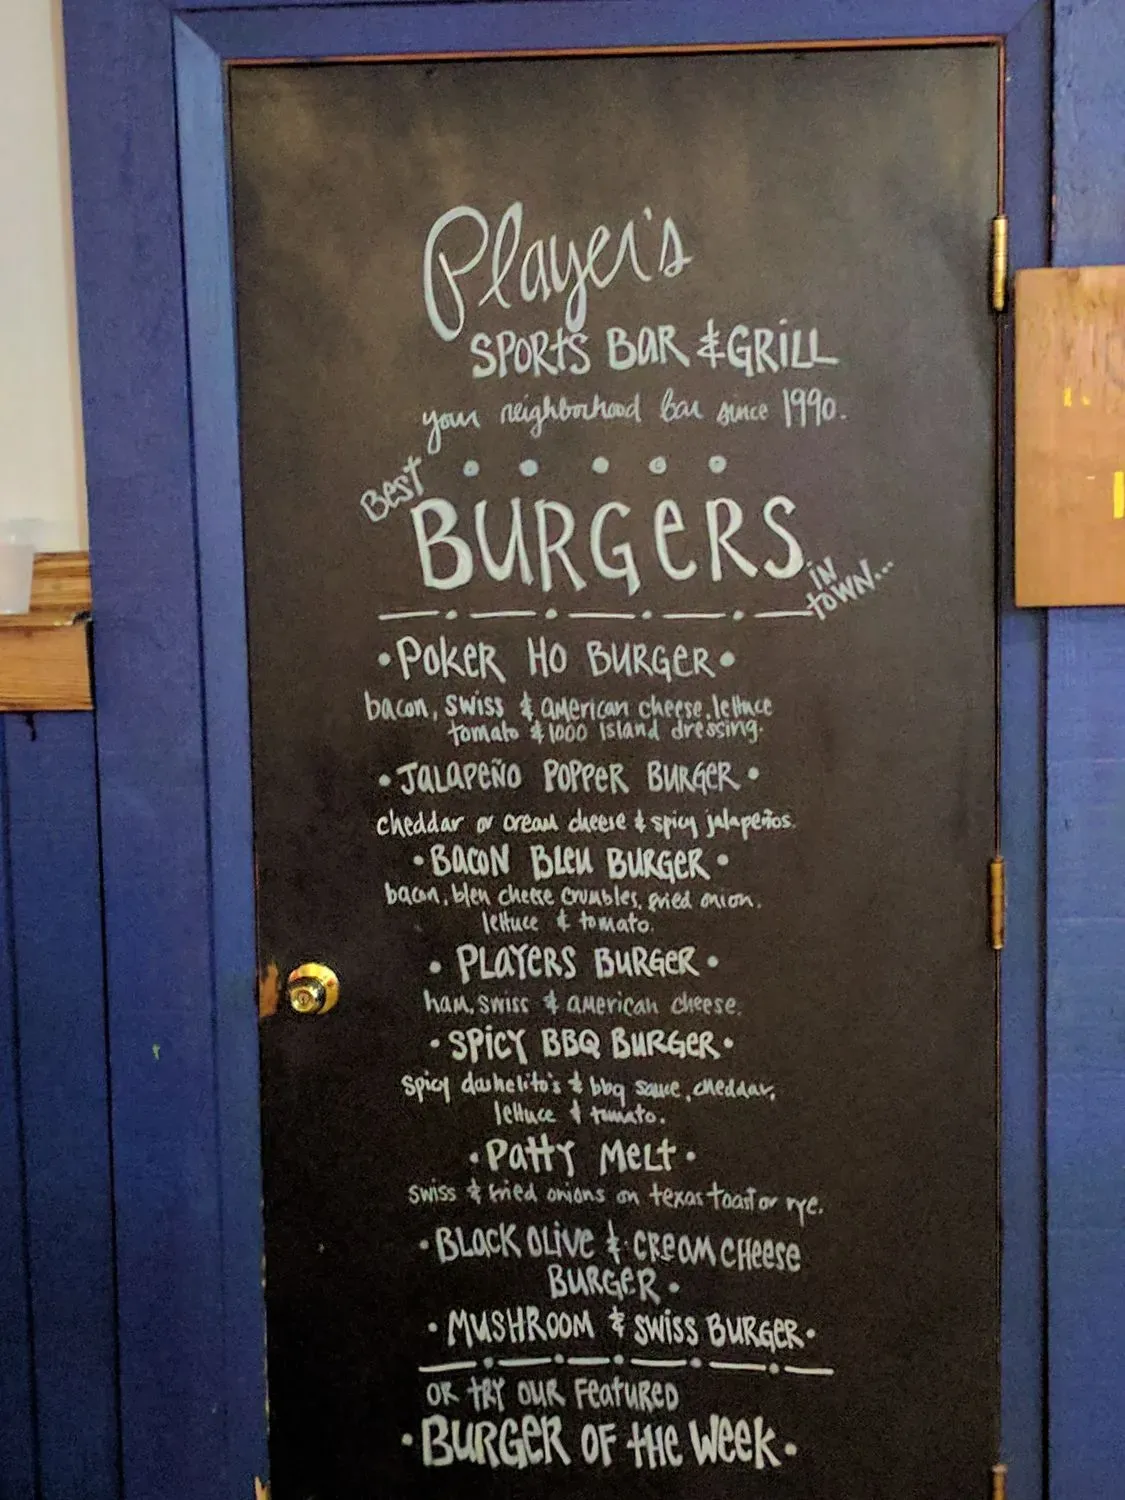 Player's
SPORTS BAR & GRILL
your neighborhood bar since 1990.
BEST
BURGERS
IN
TOWN...
• POKER HO BURGER •
bacon, swiss & american cheese, lettuce
tomato & 1000 island dressing.
• JALAPEÑO POPPER BURGER •
cheddar or cream cheese & spicy jalapeños.
• BACON BLEU BURGER •
bacon, bleu cheese crumbles, fried onion,
lettuce & tomato.
• PLAYERS BURGER •
ham, swiss & american cheese.
• SPICY BBQ BURGER •
spicy dashelito's & bbq sauce, cheddar,
lettuce & tomato.
• PATTY MELT •
swiss & fried onions on texas toast or rye.
• BLACK OLIVE & CREAM CHEESE
BURGER •
• MUSHROOM & SWISS BURGER •
OR TRY OUR FEATURED
• BURGER OF THE WEEK •